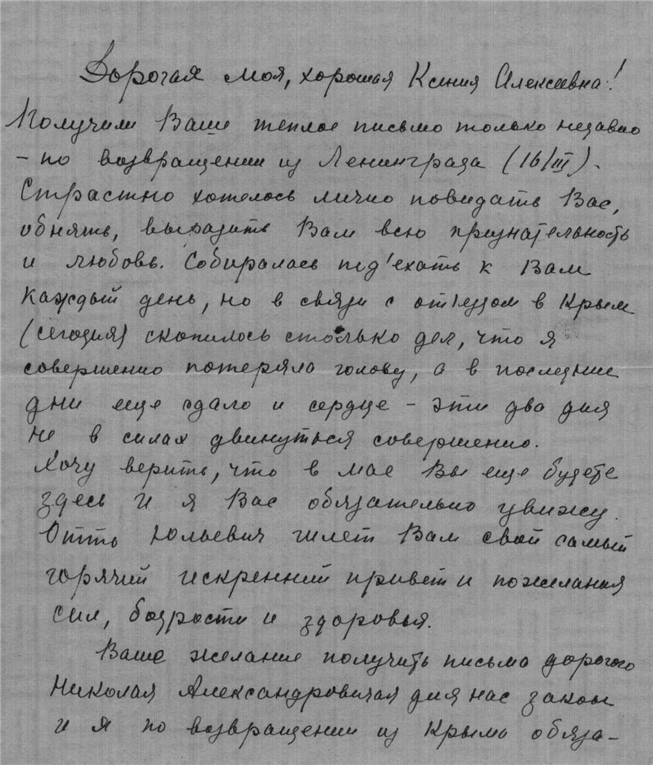 Дорогая моя, хорошая Ксения Алексеевна!
Получили Ваше теплое письмо только недавно
- по возвращении из Ленинграда (16/III).
Страстно хотелось лично повидать Вас,
обнять, выразить Вам всю признательность
и любовь. Собиралась под'ехать к Вам
каждый день, но в связи с от'ездом в Крым
(сегодня) скопилось столько дел, что я
совершенно потеряла голову, а в последние
дни еще сдало и сердце - эти два дня
не в силах двинуться совершенно.
Хочу верить, что в мае Вы еще будете
здесь и я Вас обязательно увижу.
Отто Юльевич шлет Вам свой самый
горячий искренний привет и пожелания
сил, бодрости и здоровья.
Ваше желание получить письма дорогого
Николая Александровича для нас закон
и я по возвращении из Крыма обяза-